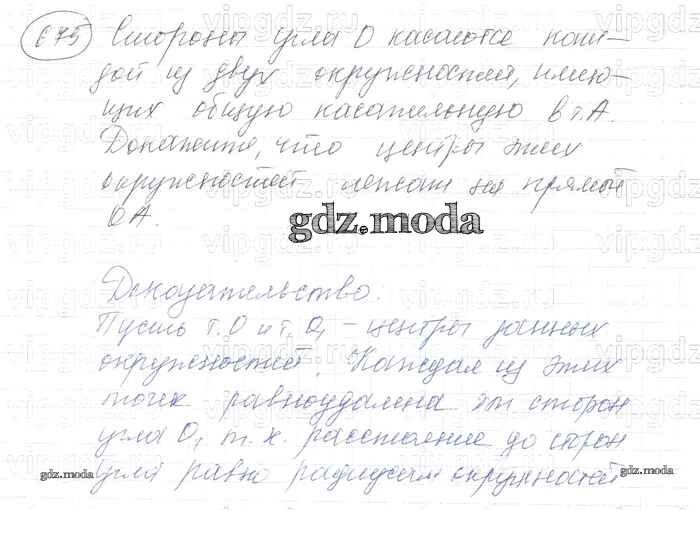 675 Стороны угла O касаются каж-
дой из двух окружностей, имею-
щих общую касательную в т.А.
Докажите, что центры этих
окружностей лежат на прямой
OA.
gdz.moda
Доказательство:
Пусть т.O и т.O₁ – центры данных
окружностей. Каждая из этих
точек равноудалена от сторон
угла O, т.к. расстояние до сторон
угла равно радиусам окружностей
gdz.moda gdz.moda